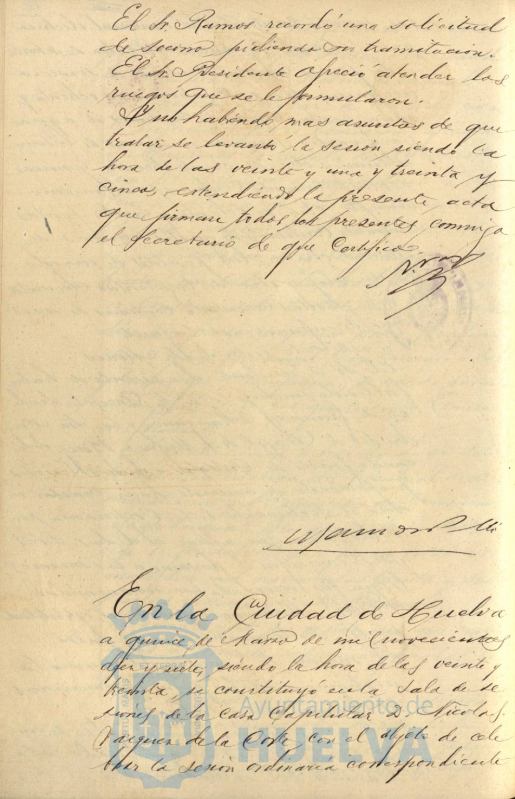 El Sr. Ramos recordó una solicitud
de socorro pidiendo su tramitacion.
El Sr. Presidente ofreció atender los
ruegos que se le formularon.
Y no habiendo mas asuntos de que
tratar se levantó la sesión siendo la
hora de las veinte y una y treinta y
cinco, extendiendo la presente acta
que firman todos los presentes conmigo
el Secretario de que Certifico.
En la Ciudad de Huelva
a quince de Marzo de mil novecientos
diez y siete, siendo la hora de las veinte y
treinta, se constituyó en la Sala de se
siones de la Casa Capitular D. Nicolas
Vazquez de la Corte, con el objeto de cele
brar la sesión ordinaria correspondiente
Ayuntamiento de
HUELVA